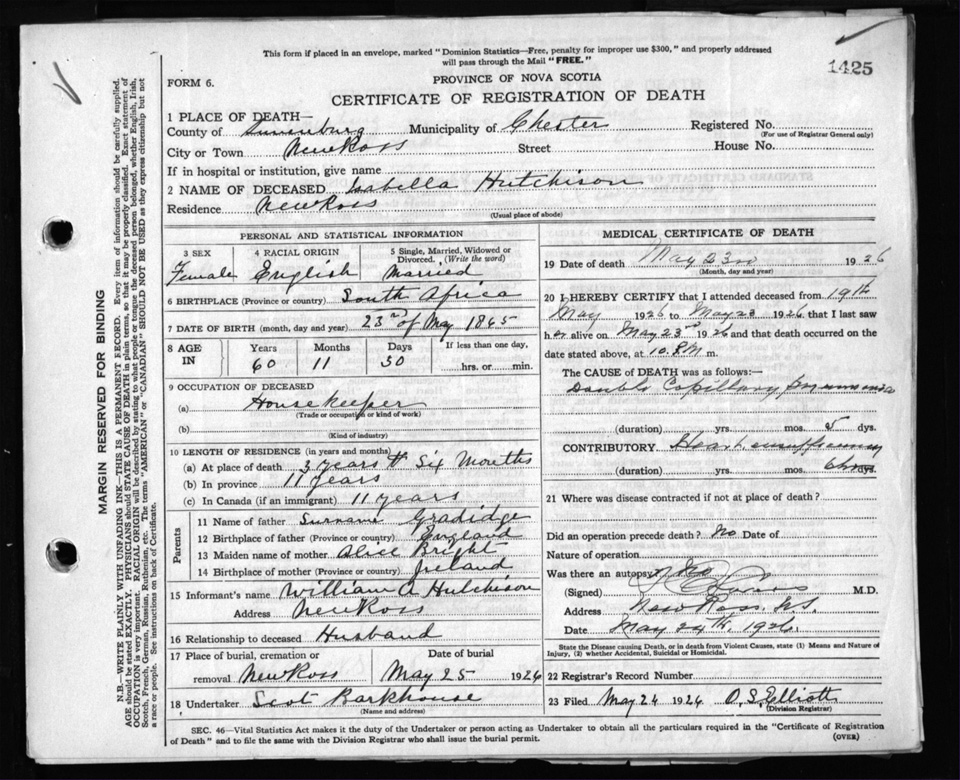 This form if placed in an envelope, marked "Dominion Statistics—Free, penalty for improper use $300," and properly addressed
will pass through the Mail "FREE."
1425
FORM 6.
PROVINCE OF NOVA SCOTIA
CERTIFICATE OF REGISTRATION OF DEATH
1 PLACE OF DEATH—
County of Lunenburg Municipality of Chester Registered No.
(For use of Registrar General only)
City or Town New Ross Street House No.
If in hospital or institution, give name
2 NAME OF DECEASED Isabella Hutchison
Residence New Ross
(Usual place of abode)
PERSONAL AND STATISTICAL INFORMATION
3 SEX 4 RACIAL ORIGIN 5 Single, Married, Widowed or Divorced. (Write the word)
Female English Married
6 BIRTHPLACE (Province or country) South Africa
7 DATE OF BIRTH (month, day and year) 23rd of May 1865
8 AGE IN Years Months Days If less than one day,
60 11 30 hrs. or min.
9 OCCUPATION OF DECEASED
(a) Housekeeper
(Trade or occupation or kind of work)
(b)
(Kind of industry)
10 LENGTH OF RESIDENCE (in years and months)
(a) At place of death 3 years Six Months
(b) In province 11 years
(c) In Canada (if an immigrant) 11 years
Parents
11 Name of father Surname Gradidge
12 Birthplace of father (Province or country) England
13 Maiden name of mother Alice Bright
14 Birthplace of mother (Province or country) Ireland
15 Informant's name William A Hutchison
Address New Ross
16 Relationship to deceased Husband
17 Place of burial, cremation or removal New Ross
Date of burial May 25 1926
18 Undertaker Scot Barkhouse
(Name and address)
MEDICAL CERTIFICATE OF DEATH
19 Date of death May 23rd 1926
(Month, day and year)
20 I HEREBY CERTIFY that I attended deceased from 19th
May 1926 to May 23 1926 that I last saw
her alive on May 23rd 1926 and that death occurred on
date stated above, at 10. P.M m.
The CAUSE of DEATH was as follows:—
Double Capillary Pneumonia
(duration) yrs. mos. 5 dys.
CONTRIBUTORY Heart insufficiency
(duration) yrs. mos. 6 hrs dys.
21 Where was disease contracted if not at place of death?
Did an operation precede death? No Date of
Nature of operation
Was there an autopsy? No
(Signed) M.D.
Address New Ross. N.S.
Date May 24th, 1926.
State the Disease causing Death, or in death from Violent Causes, state (1) Means and Nature of
Injury, (2) whether Accidental, Suicidal or Homicidal.
22 Registrar's Record Number
23 Filed May 24 1926 O.S. Elliott
(Division Registrar)
SEC. 46—Vital Statistics Act makes it the duty of the Undertaker or person acting as Undertaker to obtain all the particulars required in the "Certificate of Registration
of Death" and to file the same with the Division Registrar who shall issue the burial permit.
(OVER)
MARGIN RESERVED FOR BINDING
N.B.—WRITE PLAINLY WITH UNFADING INK—THIS IS A PERMANENT RECORD. Every item of information should be carefully supplied.
AGE should be stated EXACTLY. PHYSICIANS should STATE CAUSE OF DEATH in plain terms, so that it may be properly classified. Exact statement of
OCCUPATION is very important. RACIAL ORIGIN will be described by stating to what people or tongue the deceased person belonged, whether English, Irish,
Scotch, French, German, Russian, Ruthenian, etc. The terms "AMERICAN" or "CANADIAN" SHOULD NOT BE USED as they express citizenship but not
a race or people. See instructions on back of Certificate.